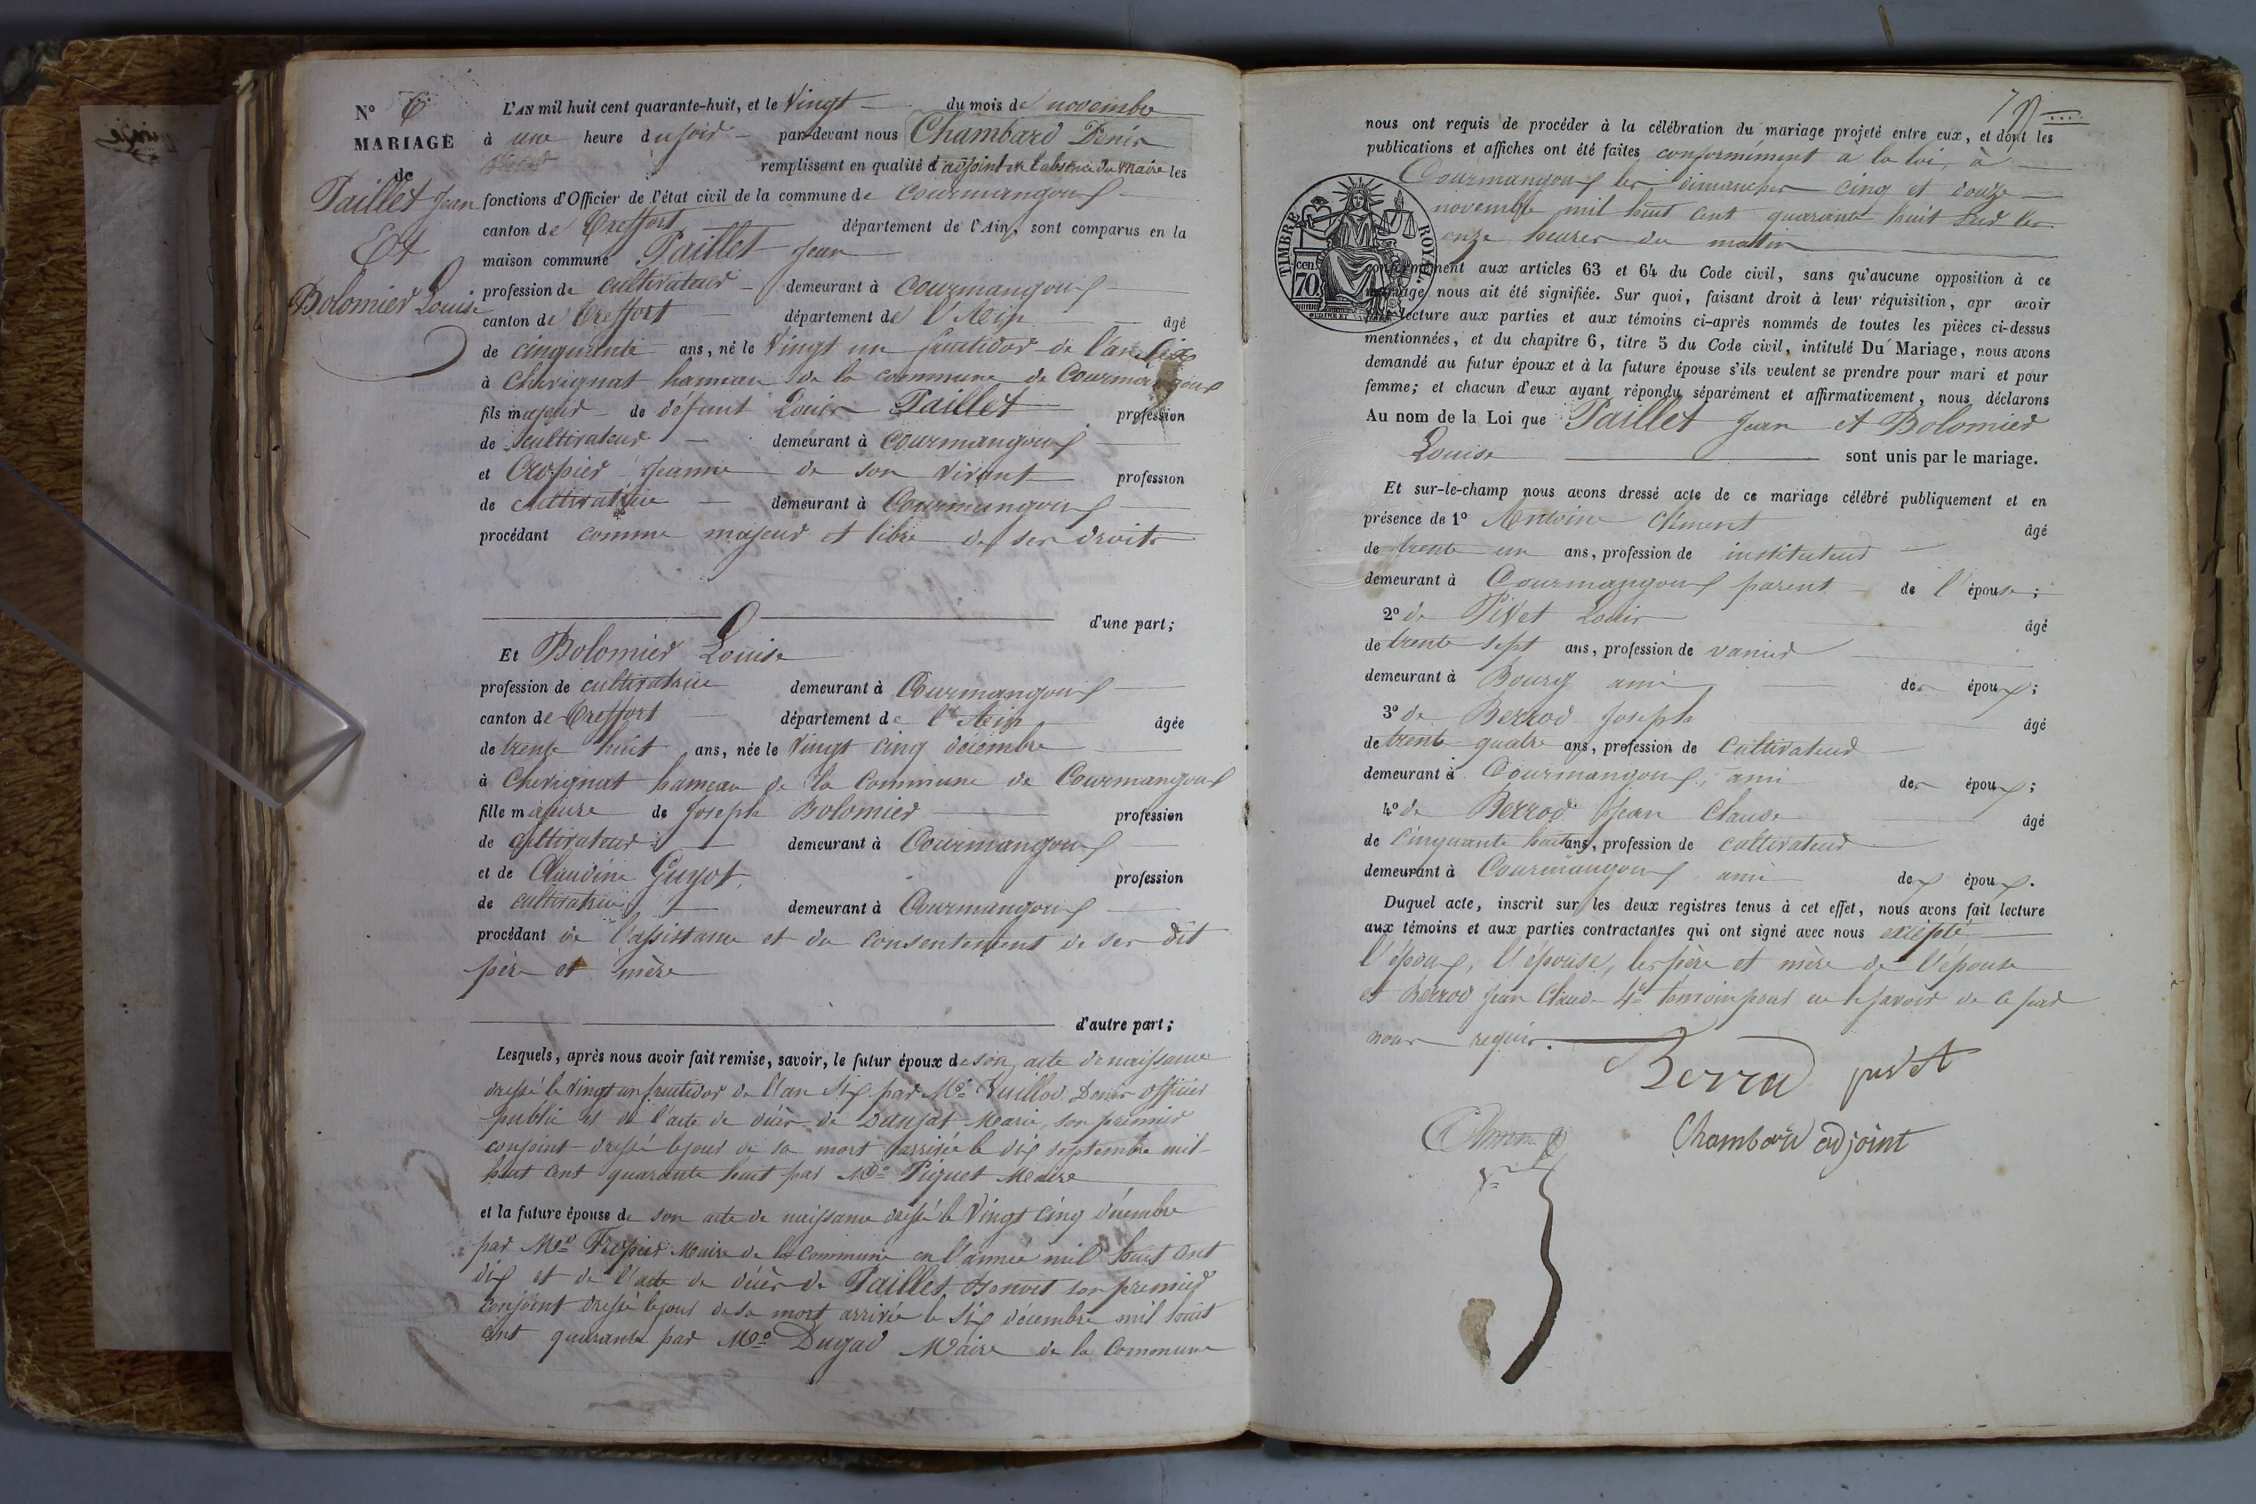 N° 6
MARIAGE
de
Paillet Jean
Et
Bolomier Louise
L'AN mil huit cent quarante-huit, et le Vingt du mois de novembre
à une heure du soir par-devant nous Chambard Denis
remplissant en qualité d'adjoint en l'absence du Maire les
fonctions d'Officier de l'état civil de la commune de Courmangoux
canton de Treffort département de l'Ain, sont comparus en la
maison commune Paillet Jean
profession de cultivateur demeurant à Courmangoux
canton de Treffort département de l'Ain âgé
de cinquante ans, né le Vingt un fructidor de l'an six
à Chevignat hameau de la commune de Courmangoux
fils majeur de défunt Louis Paillet profession
de cultivateur demeurant à Courmangoux
et Jeanne de son vivant profession
de cultivatrice demeurant à Courmangoux
procédant comme majeur et libre de ses droits
d'une part;
Et Bolomier Louise
profession de cultivatrice demeurant à Courmangoux
canton de Treffort département de l'Ain âgée
de trente huit ans, née le Vingt cinq décembre
à Chevignat hameau de la commune de Courmangoux
fille majeure de Joseph Bolomier profession
de cultivateur demeurant à Courmangoux
et de Claudine Guyot profession
de cultivatrice demeurant à Courmangoux
procédant de l'assistance et du consentement de ses dit
père et mère
d'autre part;
Lesquels, après nous avoir fait remise, savoir, le futur époux de son acte de naissance
dressé le Vingt un fructidor de l'an Six par Mr Denis officier
public et de l'acte de décès de Marie, son premier
conjoint dressé le jour de sa mort arrivée le dix septembre mil
huit cent quarante huit par Mr Piquet Maire
et la future épouse de son acte de naissance dressé le Vingt cinq décembre
par Mr Maire de la commune en l'année mil huit cent
dix et de l'acte de décès de Paillet Benoit son premier
conjoint dressé le jour de sa mort arrivée le Six décembre mil huit
cent quarante par Mr Dugad Maire de la Commune
nous ont requis de procéder à la célébration du mariage projeté entre eux, et dont les
publications et affiches ont été faites conformément a la loi, à
Courmangoux les dimanches cinq et douze
novembre mil huit cent quarante huit sur les
onze heures du matin
TIMBRE ROYAL
70 cen.
conformément aux articles 63 et 64 du Code civil, sans qu'aucune opposition à ce
mariage nous ait été signifiée. Sur quoi, faisant droit à leur réquisition, apr avoir
lecture aux parties et aux témoins ci-après nommés de toutes les pièces ci-dessus
mentionnées, et du chapitre 6, titre 5 du Code civil, intitulé Du Mariage, nous avons
demandé au futur époux et à la future épouse s'ils veulent se prendre pour mari et pour
femme; et chacun d'eux ayant répondu séparément et affirmativement, nous déclarons
Au nom de la Loi que Paillet Jean et Bolomier
Louise sont unis par le mariage.
Et sur-le-champ nous avons dressé acte de ce mariage célébré publiquement et en
présence de 1° Antoine Clément âgé
de trente un ans, profession de instituteur
demeurant à Courmangoux parent de l'épouse;
2° de Pivet Louis âgé
de trente sept ans, profession de vanier
demeurant à Bourg ami des époux;
3° de Berrod Joseph âgé
de trente quatre ans, profession de cultivateur
demeurant à Courmangoux, ami des époux;
4° de Berrod Jean Claude âgé
de cinquante huit ans, profession de cultivateur
demeurant à Courmangoux ami des époux.
Duquel acte, inscrit sur les deux registres tenus à cet effet, nous avons fait lecture
aux témoins et aux parties contractantes qui ont signé avec nous excepté
l'époux, l'épouse, les père et mère de l'épouse
et Berrod Jean Claude 4e temoin pour ne le savoir de ce par
nous requis.
Berrod
Chambard adjoint